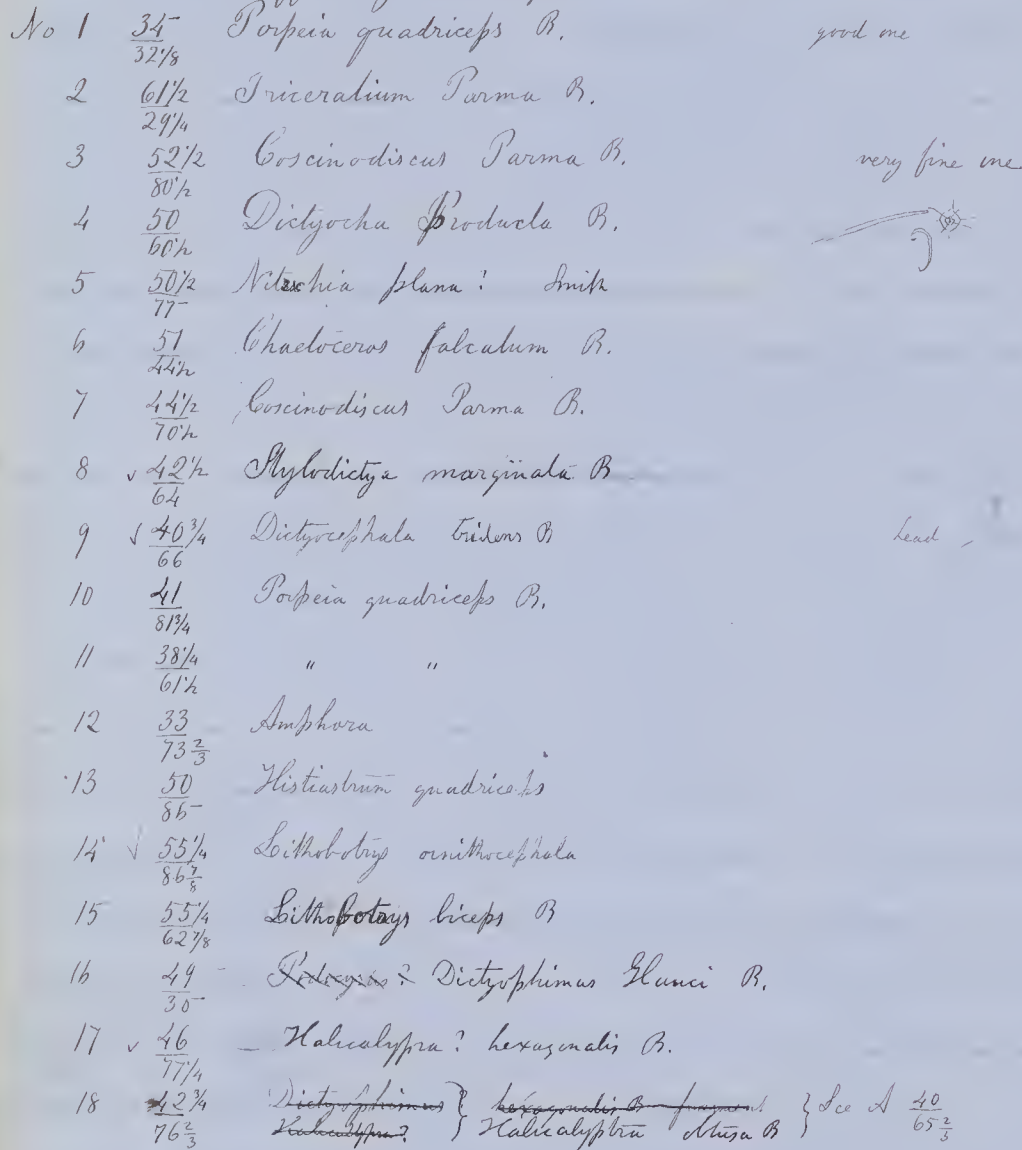 No 1 35/32 1/8 Porpeia quadriceps B. good one
2 61 1/2/29 1/4 Triceratium Parma B.
3 52 1/2/80 1/2 Coscinodiscus Parma B. very fine one
4 50/60 1/2 Dictyocha Producta B.
5 50 1/2/77 Nitzschia plana? Smith
6 51/44 1/2 Chaetoceros falcatum B.
7 44 1/2/70 1/2 Coscinodiscus Parma B.
8 ✓ 42 1/2/64 Stylodictya marginata B
9 ✓ 40 3/4/66 Dictyocephala tridens B head
10 41/81 3/4 Porpeia quadriceps B.
11 38 1/4/61 1/2 " "
12 33/73 2/3 Amphora
13 50/86 Histiastrum quadriceps
14 ✓ 55 1/4/86 7/8 Lithobotrys ornithocephala
15 55 1/4/62 7/8 Lithobotrys biceps B
16 49/30 Dictyophimus B.
17 ✓ 46/77 1/4 Halicalypra? hexagonalis B.
18 42 3/4/76 2/3 Dictyophimus } hexagonalis B fragment } See A 40/65 2/3
Halicalypra? Halicalyptra obtusa B